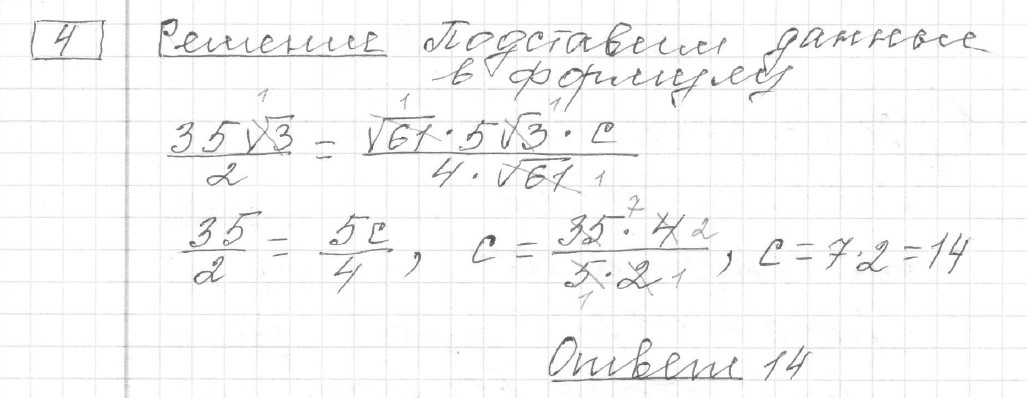 4 Решение Подставим данные
в формулу
35√3/2 = √61·5√3·c/4·√61
35/2 = 5c/4, c = 35·4/5·2, c = 7·2 = 14
Ответ 14